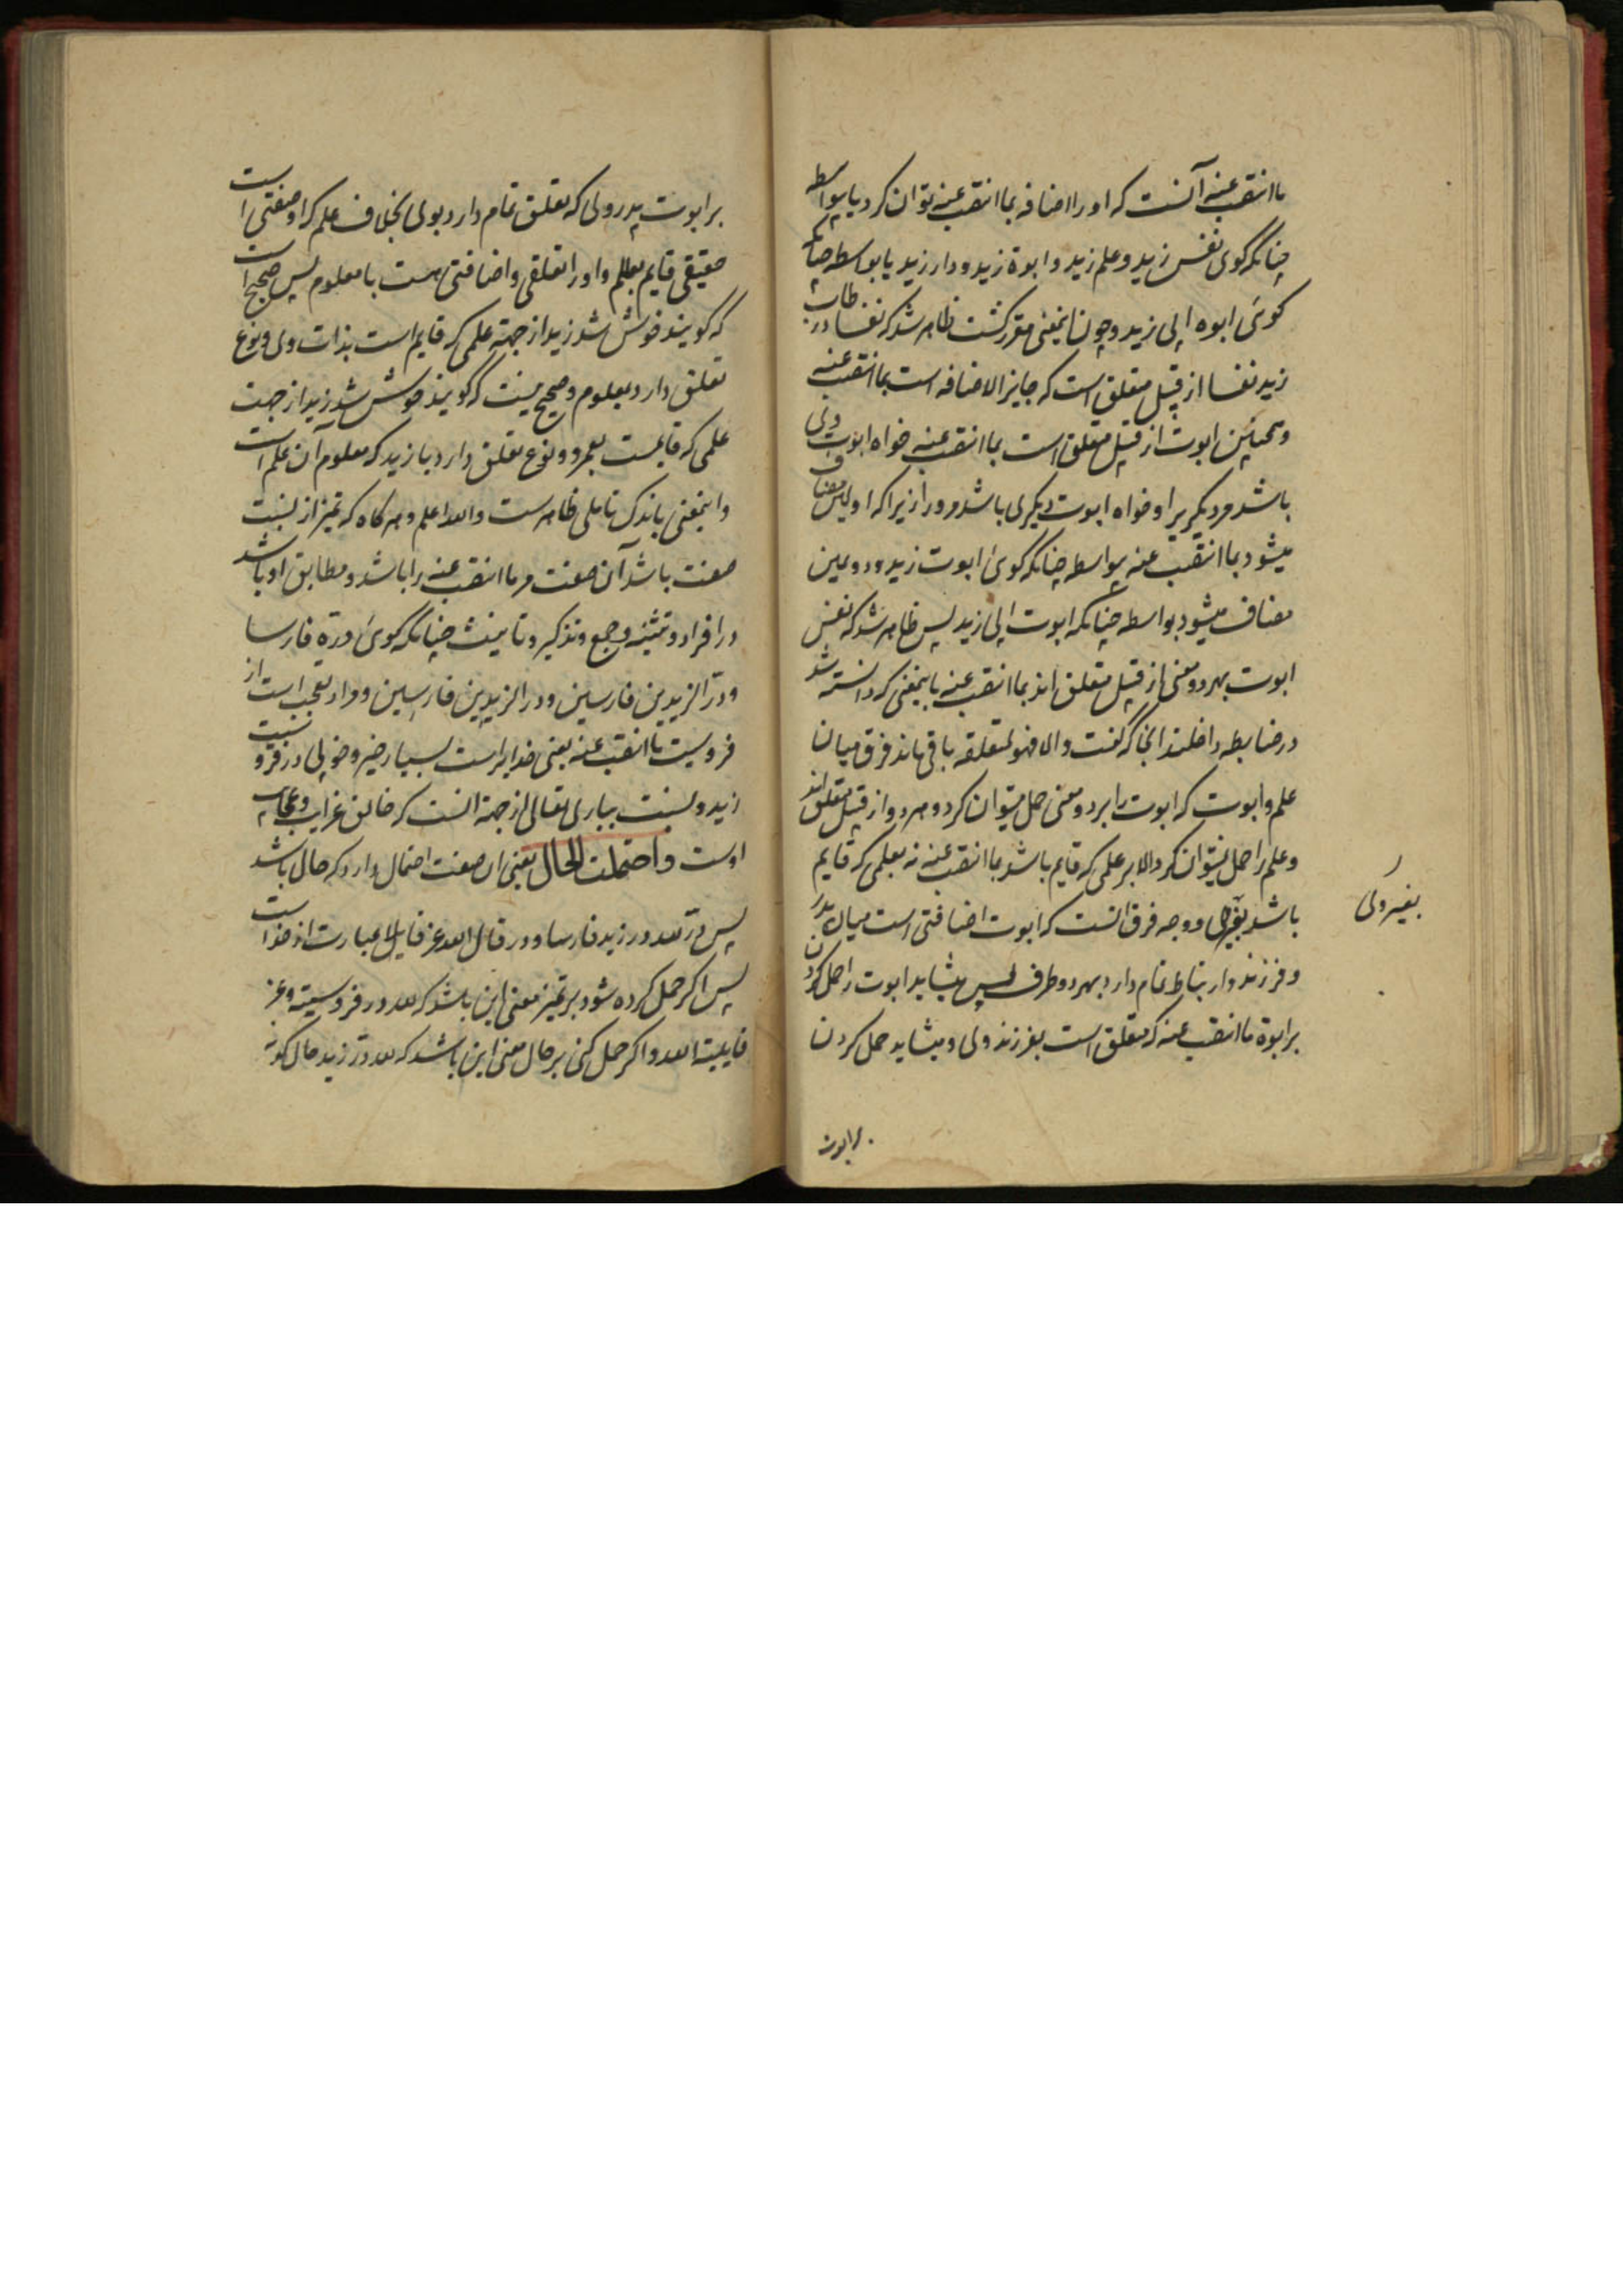 ما انتصب عنه آنست که اورا اضافه بما انتصب عنه توان کرد یا بیواسطه
چنانکه کوی نفس زید وعلم زید وابوة زید ودار زید یا بواسطه چنانکه
کوئی ابوه الی زید وچون اینمعنی مقرر کشت ظاهر شد که نفسا در طاب
زید نفسا از قبیل متعلق است که جایز الاضافه است بما انتصب عنه
وهمچنین ابوت از قبیل متعلق است بما انتصب عنه خواه ابوت ولی
باشد مر دیکری را وخواه ابوت دیکری باشد مرورا زیرا که اولین مضاف
میشود بما انتصب عنه بیواسطه چنانکه کوئ ابوت زید ودومین
مضاف میشود بواسطه چنانکه ابوت الی زید پس ظاهر شد که نفس
ابوت بهر دو معنی از قبیل متعلق اند بما انتصب عنه باینمعنی که دانسته شد
در ضابطه داخلند انجا که گفت والا فهو لمتعلقه باقی ماند فرق میان
علم وابوت که ابوت را بر دو معنی حمل میتوان کرد وهر دو از قبیل متعلق اند
وعلم را حمل نمیتوان کرد الا بر علمی که قایم باشد بما انتصب عنه نه بعلمی که قایم
باشد بغیر وی ووجه فرق انست که ابوت اضافتی است میان پدر
وفرزند وارتباط تمام دارد بهر دو طرف پس میشاید ابوت را حمل کردن
بر ابوة ما انتصب عنه که متعلق است بفرزند ولی ومیشاید حمل کردن
بغیر وی
بر ابوت
بر ابوت پدر ولی که تعلق تمام دارد بولی بخلاف علم که او صفتی است
حقیقی قایم بعالم واورا تعلقی واضافتی هست با معلوم پس صحیح است
که کویند خوش شد زید از جهة علمی که قایم است بذات ولی ونوع
تعلق دارد بمعلوم وصحیح نیست که کویند خوش شد زید از جهت
علمی که قایمست بعمرو ونوع تعلق دارد با زید که معلوم آن علم است
واینمعنی باندک تاملی ظاهرست والله اعلم وهرکاه که تمیز از نسبت
صفت باشد آن صفت مر ما انتصب عنه را باشد ومطابق او باشد
در افراد وتثنیه وجمع وتذکیر وتانیث چنانکه کوئ دره فارسا
ودر الزیدین فارسین ودر الزیدین فارسین ومراد تعجب است از
فروسیت ما انتصب عنه یعنی خدایراست بسیار خیر وخوبی در فرو سیت
زید ونسبت بباری تعالی از جهة انست که خالق غرایب وعجایب
اوست واحتملت الحال یعنی ان صفت احتمال دارد که حال باشد
پس در لله در زید فارسا ودر قال الله عز قایلا عبارت از خدا است
پس اکر حمل کرده شود بر تمیز معنی این باشد که لله در فروسیته وعز
قایلیته الله واکر حمل کنی بر حال معنی این باشد که لله در زید حال کونه